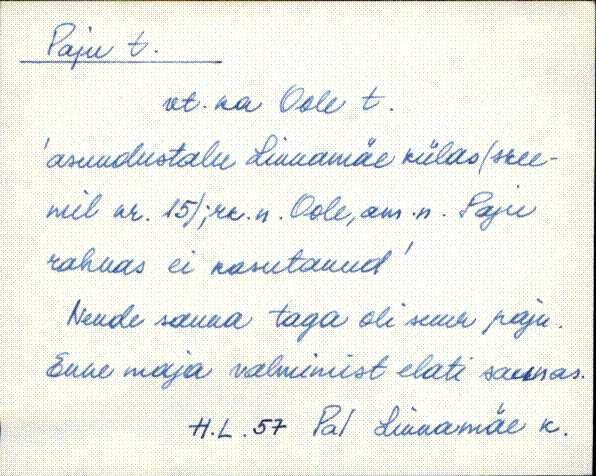 Paju t.
vt. ka Oole t.
'asundustalu Linnamäe külas (skee-
mil nr. 15); rk. n. Oole, am. n. Paju
rahvas ei kasutanud'
Nende sauna taga oli suur paju.
Enne maja valmimist elati saunas.
H.L. 57 Pal Linnamäe k.